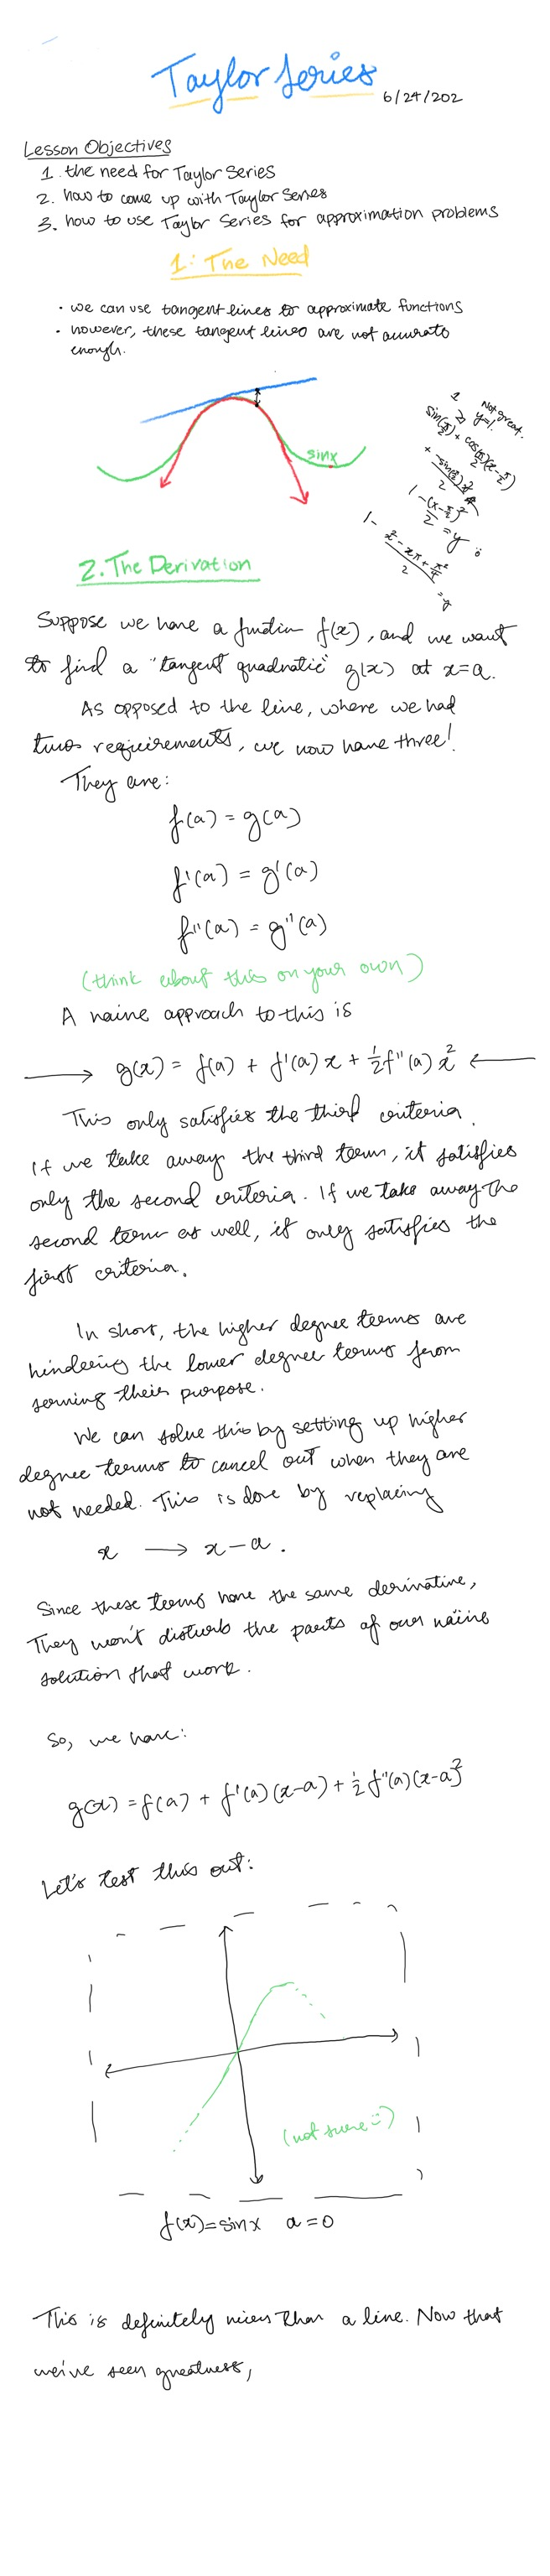 Taylor Series
6/24/202
Lesson Objectives
1. the need for Taylor Series
2. how to come up with Taylor Series
3. how to use Taylor Series for approximation problems
1: The Need
• we can use tangent lines to approximate functions
• however, these tangent lines are not accurate
enough.
sinx
Not great.
y=1.
sin(π/2) + cos(π/2)(x-π/2)
1 - (x-π/2)²/2 = y
2. The Derivation
Suppose we have a function f(x), and we want
to find a "tangent quadratic" g(x) at x=a.
As opposed to the line, where we had
two requirements, we now have three!
They are:
f(a) = g(a)
f'(a) = g'(a)
f''(a) = g''(a)
(think about this on your own)
A naïve approach to this is
→ g(x) = f(a) + f'(a) x + ½f''(a) x² ←
This only satisfies the third criteria.
If we take away the third term, it satisfies
only the second criteria. If we take away the
second term as well, it only satisfies the
first criteria.
In short, the higher degree terms are
hindering the lower degree terms from
serving their purpose.
We can solve this by setting up higher
degree terms to cancel out when they are
not needed. This is done by replacing
x → x-a.
Since these terms have the same derivative,
They won't disturb the parts of our naïve
solution that work.
So, we have:
g(x) = f(a) + f'(a)(x-a) + ½ f''(a)(x-a)²
Let's test this out:
(not sure :))
f(x)=sinx a=0
This is definitely nicer than a line. Now that
we've seen greatness,